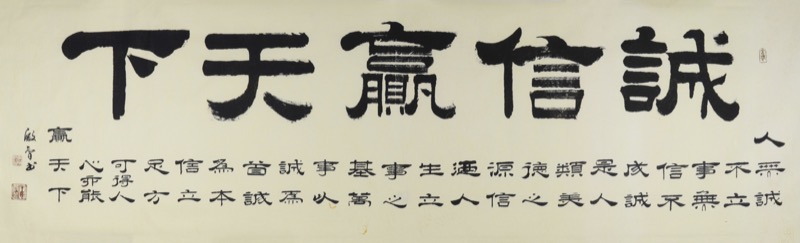 誠信贏天下
人無誠
不立
事無
信不
成誠
是人
類美
德之
源信
迺人
生立
事之
基萬
事以
誠為
首誠
為本
信立
足方
可得人
心能
贏天下
書